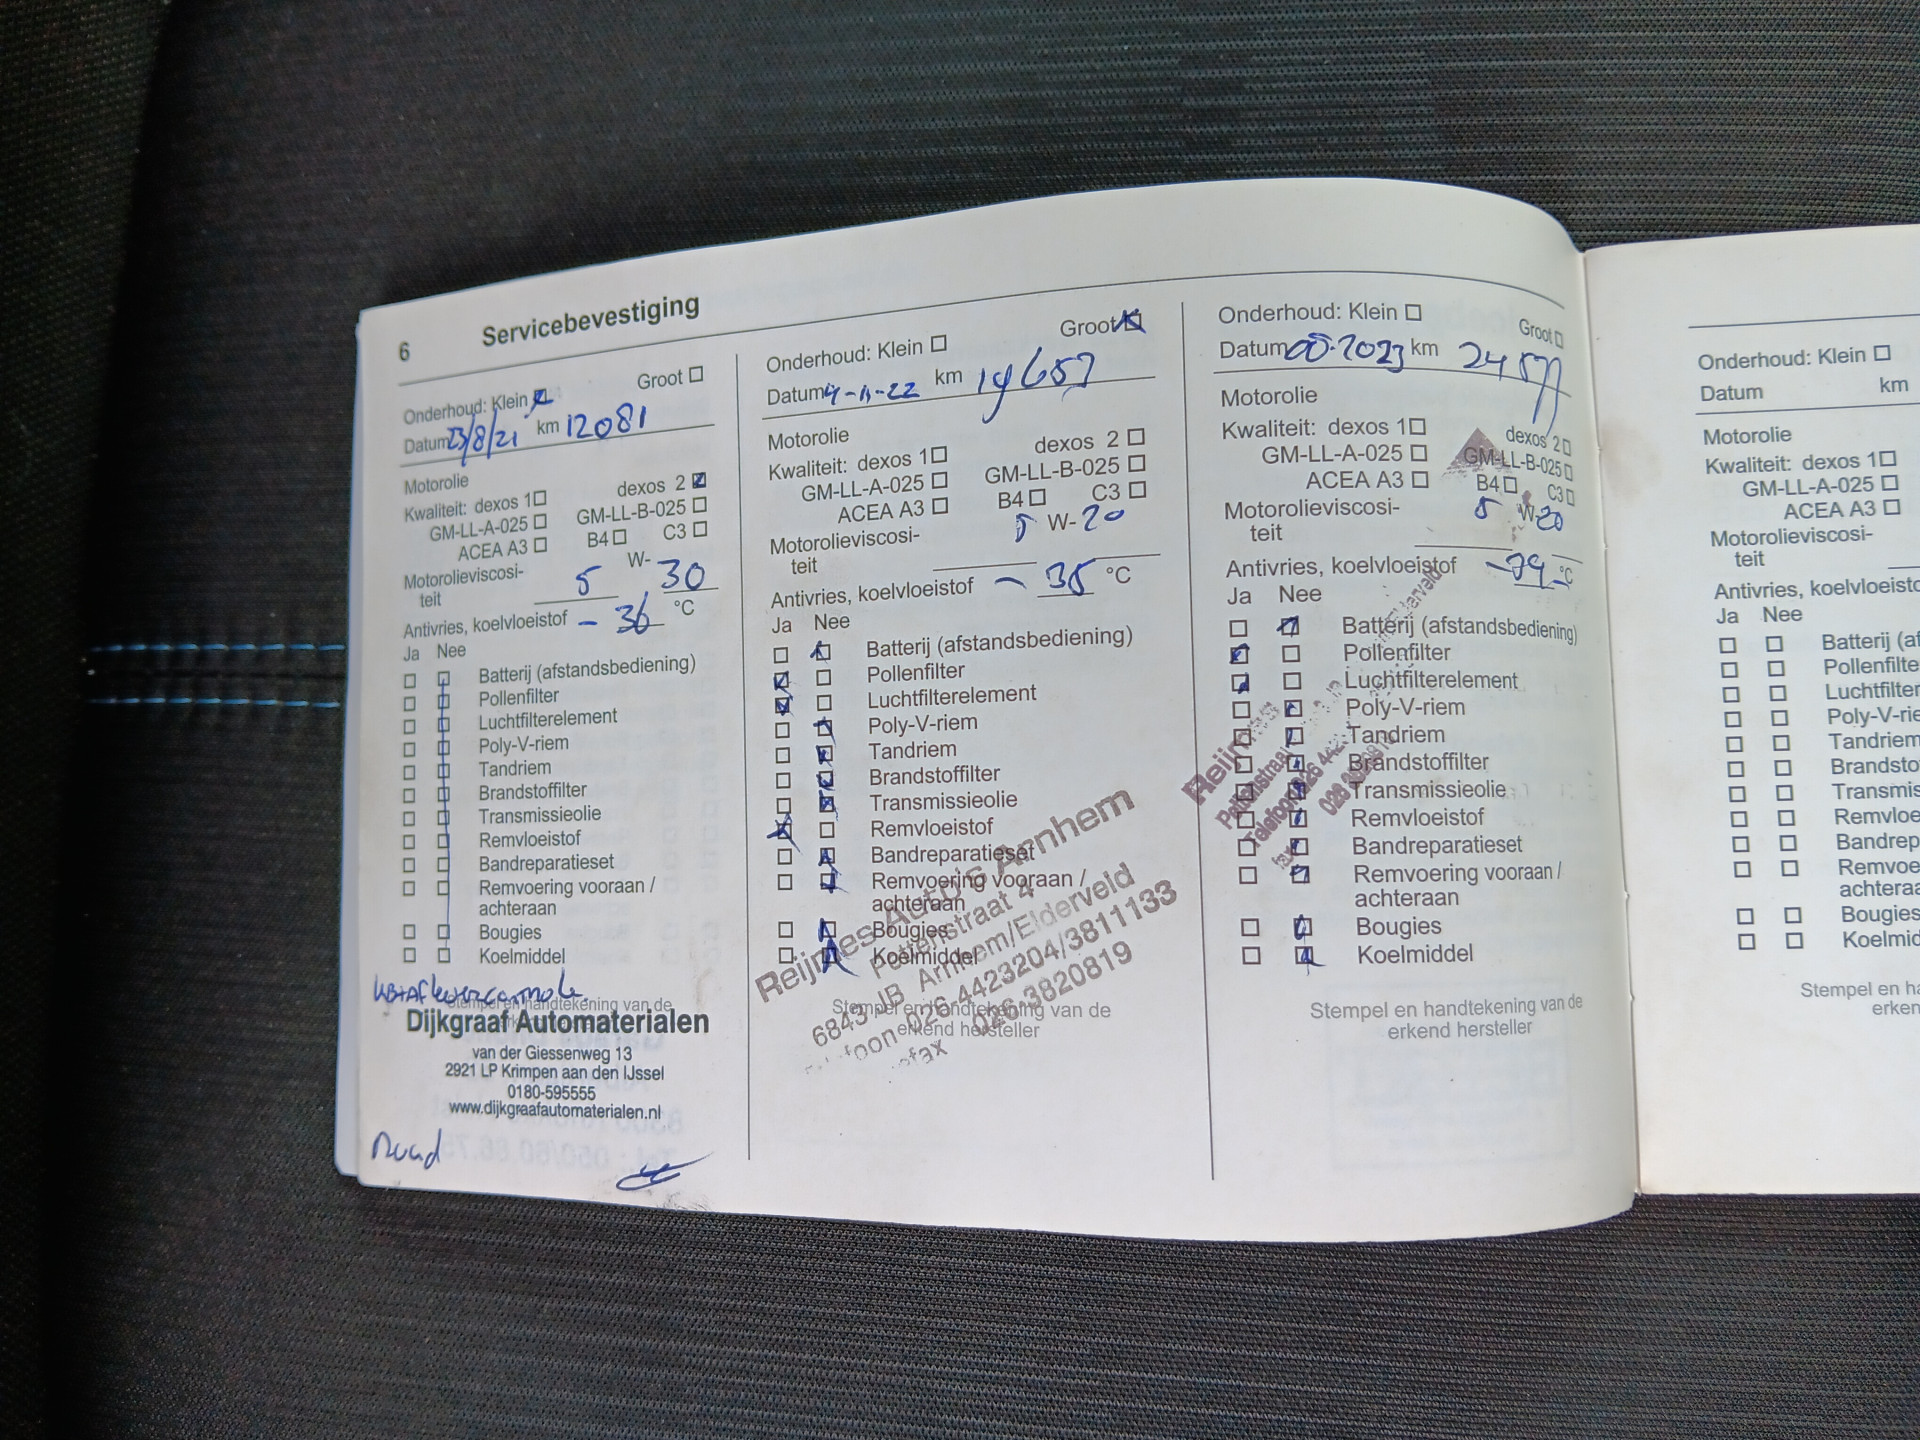 6 Servicebevestiging
Onderhoud: Klein Groot
Datum 23/8/21 km 12081
Motorolie
Kwaliteit: dexos 1 dexos 2
GM-LL-A-025 GM-LL-B-025
ACEA A3 B4 C3
Motorolieviscosi-
teit 5 W- 30
Antivries, koelvloeistof - 36 °C
Ja Nee
Batterij (afstandsbediening)
Pollenfilter
Luchtfilterelement
Poly-V-riem
Tandriem
Brandstoffilter
Transmissieolie
Remvloeistof
Bandreparatieset
Remvoering vooraan /
achteraan
Bougies
Koelmiddel
Stempel en handtekening van de
Dijkgraaf Automaterialen
van der Giessenweg 13
2921 LP Krimpen aan den IJssel
0180-595555
www.dijkgraafautomaterialen.nl
Onderhoud: Klein Groot
Datum 4-11-22 km 19657
Motorolie
Kwaliteit: dexos 1 dexos 2
GM-LL-A-025 GM-LL-B-025
ACEA A3 B4 C3
Motorolieviscosi-
teit 5 W- 20
Antivries, koelvloeistof - 35 °C
Ja Nee
Batterij (afstandsbediening)
Pollenfilter
Luchtfilterelement
Poly-V-riem
Tandriem
Brandstoffilter
Transmissieolie
Remvloeistof
Bandreparatieset
Remvoering vooraan /
achteraan
Bougies
Koelmiddel
Stempel en handtekening van de
erkend hersteller
Reijmes Auto's Arnhem
Pettenstraat 4
6843 JB Arnhem/Elderveld
foon 026-4423204/3811133
026-3820819
Onderhoud: Klein Groot
Datum 2023 km
Motorolie
Kwaliteit: dexos 1 dexos 2
GM-LL-A-025 GM-LL-B-025
ACEA A3 B4 C3
Motorolieviscosi-
teit 5 W-20
Antivries, koelvloeistof °C
Ja Nee
Batterij (afstandsbediening)
Pollenfilter
Luchtfilterelement
Poly-V-riem
Tandriem
Brandstoffilter
Transmissieolie
Remvloeistof
Bandreparatieset
Remvoering vooraan /
achteraan
Bougies
Koelmiddel
Stempel en handtekening van de
erkend hersteller
Onderhoud: Klein
Datum km
Motorolie
Kwaliteit: dexos 1
GM-LL-A-025
ACEA A3
Motorolieviscosi-
teit
Antivries, koelvloeisto
Ja Nee
Batterij (af
Pollenfilte
Luchtfilter
Poly-V-rie
Tandriem
Brandsto
Transmis
Remvloe
Bandrep
Remvoe
achtera
Bougies
Koelmid
Stempel en ha
erken